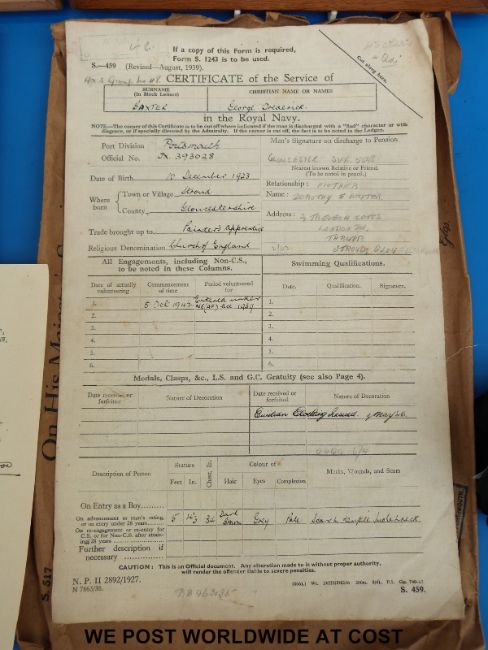 If a copy of this Form is required,
Form S. 1243 is to be used.
S.—459 (Revised—August, 1939).
Cut along here.
CERTIFICATE of the Service of
SURNAME
(In Block Letters)
CHRISTIAN NAME OR NAMES
BAXTER
George Frederick
in the Royal Navy.
NOTE—The corner of this Certificate is to be cut off where indicated if the man is discharged with a "Bad" character or with
disgrace, or if specially directed by the Admiralty. If the corner is cut off, the fact is to be noted in the Ledger.
Port Division Portsmouth
Official No. 393028
Man's Signature on discharge to Pension
Nearest known Relative or Friend
(To be noted in pencil.)
Date of Birth December 1923
Relationship: MOTHER
Name: DOROTHY
Where born
Town or Village Stroud
County Gloucestershire
Address:
LONDON RD
STROUD
Trade brought up to Painter's apprentice
Religious Denomination Church of England
All Engagements, including Non-C.S.,
to be noted in these Columns.
Swimming Qualifications.
Date of actually
volunteering
Commencement
of time
Period volunteered
for
Date.
Qualification.
Signature.
1. 5 Oct 1942
1.
2.
2.
3.
3.
4.
4.
5.
5.
6.
6.
Medals, Clasps, &c., L.S. and G.C. Gratuity (see also Page 4).
Date received or
forfeited
Nature of Decoration
Date received or
forfeited
Nature of Decoration
Civilian Clothing Issued
Description of Person
Stature
Feet
In.
Chest, In.
Colour of
Hair
Eyes
Complexion
Marks, Wounds, and Scars
On Entry as a Boy
On advancement to man's rating,
or on entry under 28 years
5
Dark Brown
Grey
Pale
Scar
On re-engagement or re-entry for
C.S. or for Non-C.S. after attain-
ing 28 years
Further description if
necessary
CAUTION: This is an Official document. Any alteration made to it without proper authority,
will render the offender liable to severe penalties.
N. P. II 2892/1927.
N 7665/36.
S. 459.
S. 517
On His
WE POST WORLDWIDE AT COST